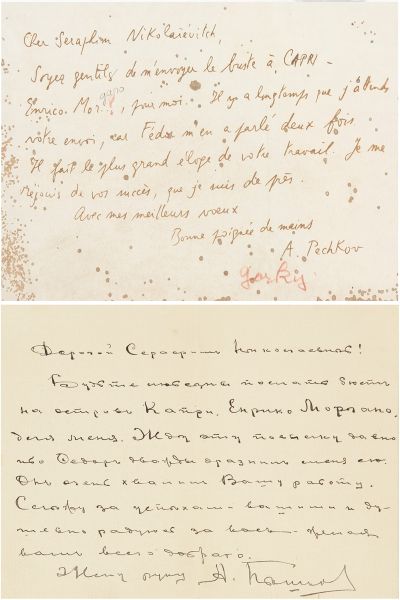 Cher Seraphim Nikólaiévitch,
Soyez gentils de m'envoyer le buste à CAPRI –
Enrico. Morgano, pour moi. Il y a longtemps que j'attends
votre envoi, car Fédor m'en a parlé deux fois
Il fait le plus grand éloge de votre travail. Je me
réjouis de vos succès, que je suis de près.
Avec mes meilleurs voeux
Bonne poignée de mains
A. Pechkov
gorkij.
Дорогой Серафим Николаевич!
Будьте любезны послать бюст
на остров Капри, Енрико Моргано,
для меня. Жду эту посылку давно
ибо Федор дважды дразнил меня ею.
Он очень хвалит Вашу работу.
Слежу за успехами вашими и ду-
шевно радуюсь за вас – желая
вам всего доброго.
Жму руку А. Пешков